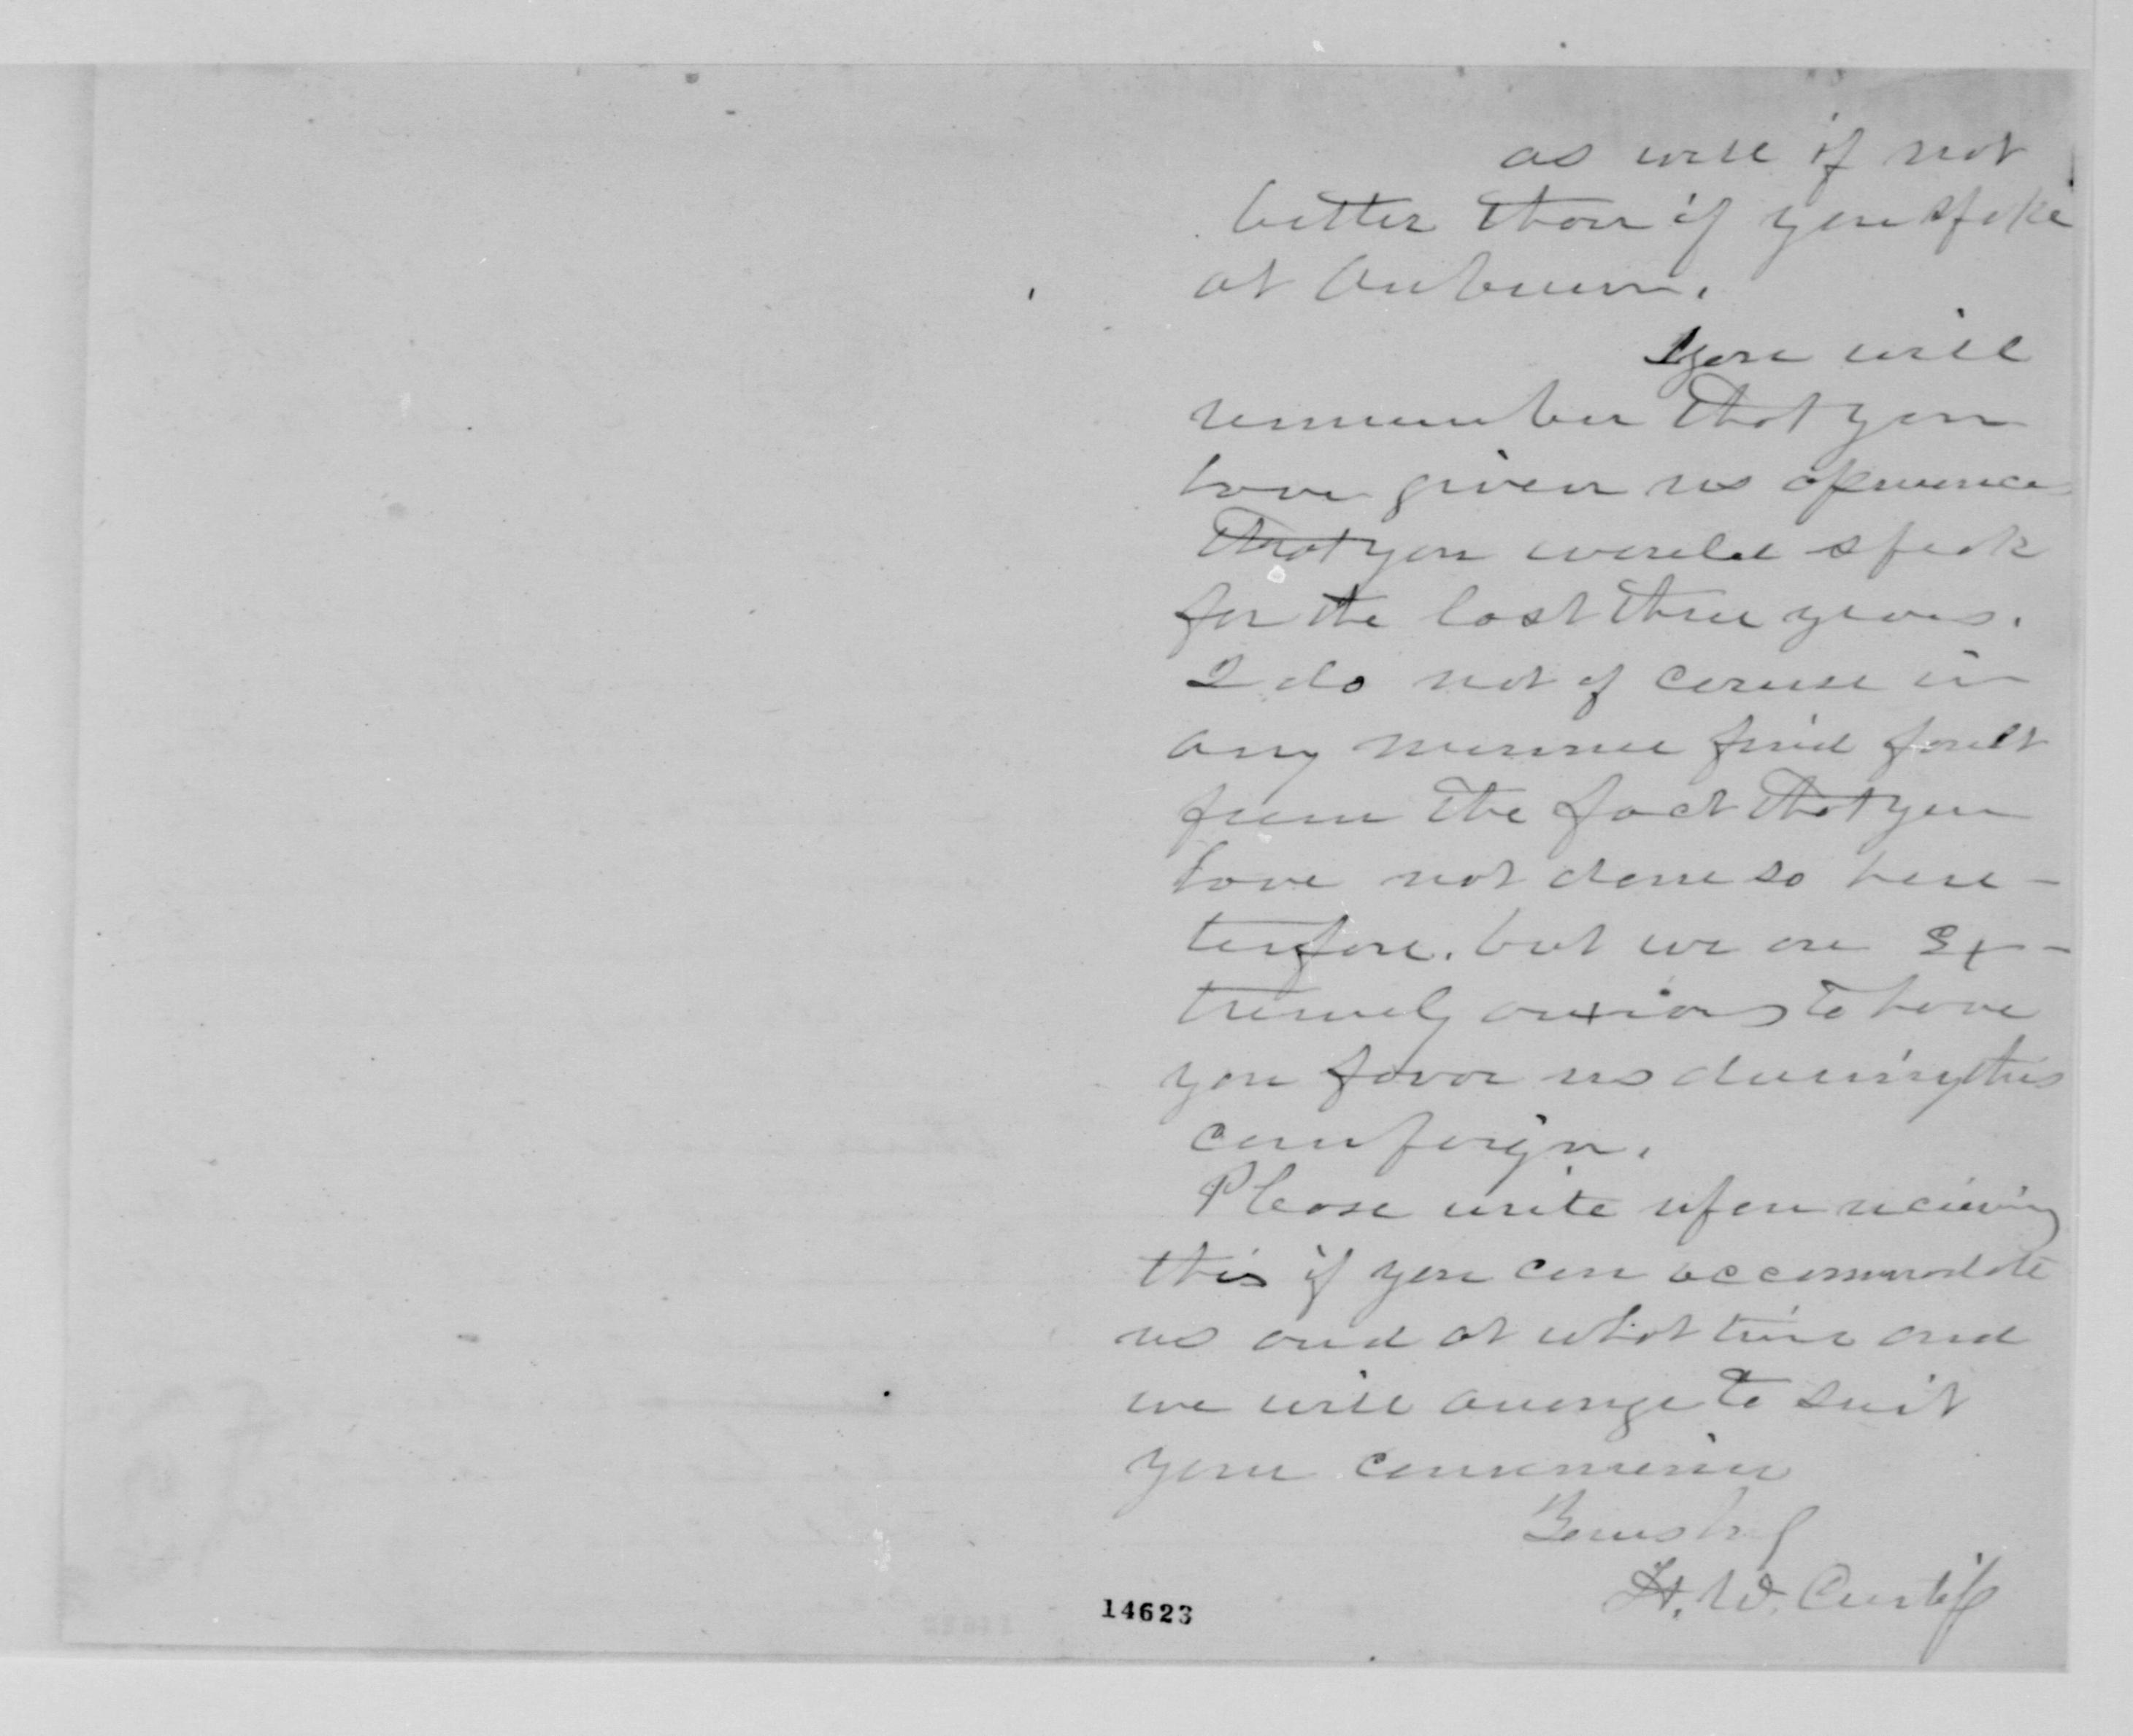 as well if not
better than if you spoke
at Auburn.
You will
remember that you
have given us
that you would speak
for the last three years.
I do not of course in
any manner find fault
from the fact that you
have not done so here-
tofore. but we are ex-
tremely anxious to have
you favor us during this
campaign.
Please write upon recieving
this if you can accommodate
us and at what time and
we will arrange to suit
your
H. W. Curtiss
14623